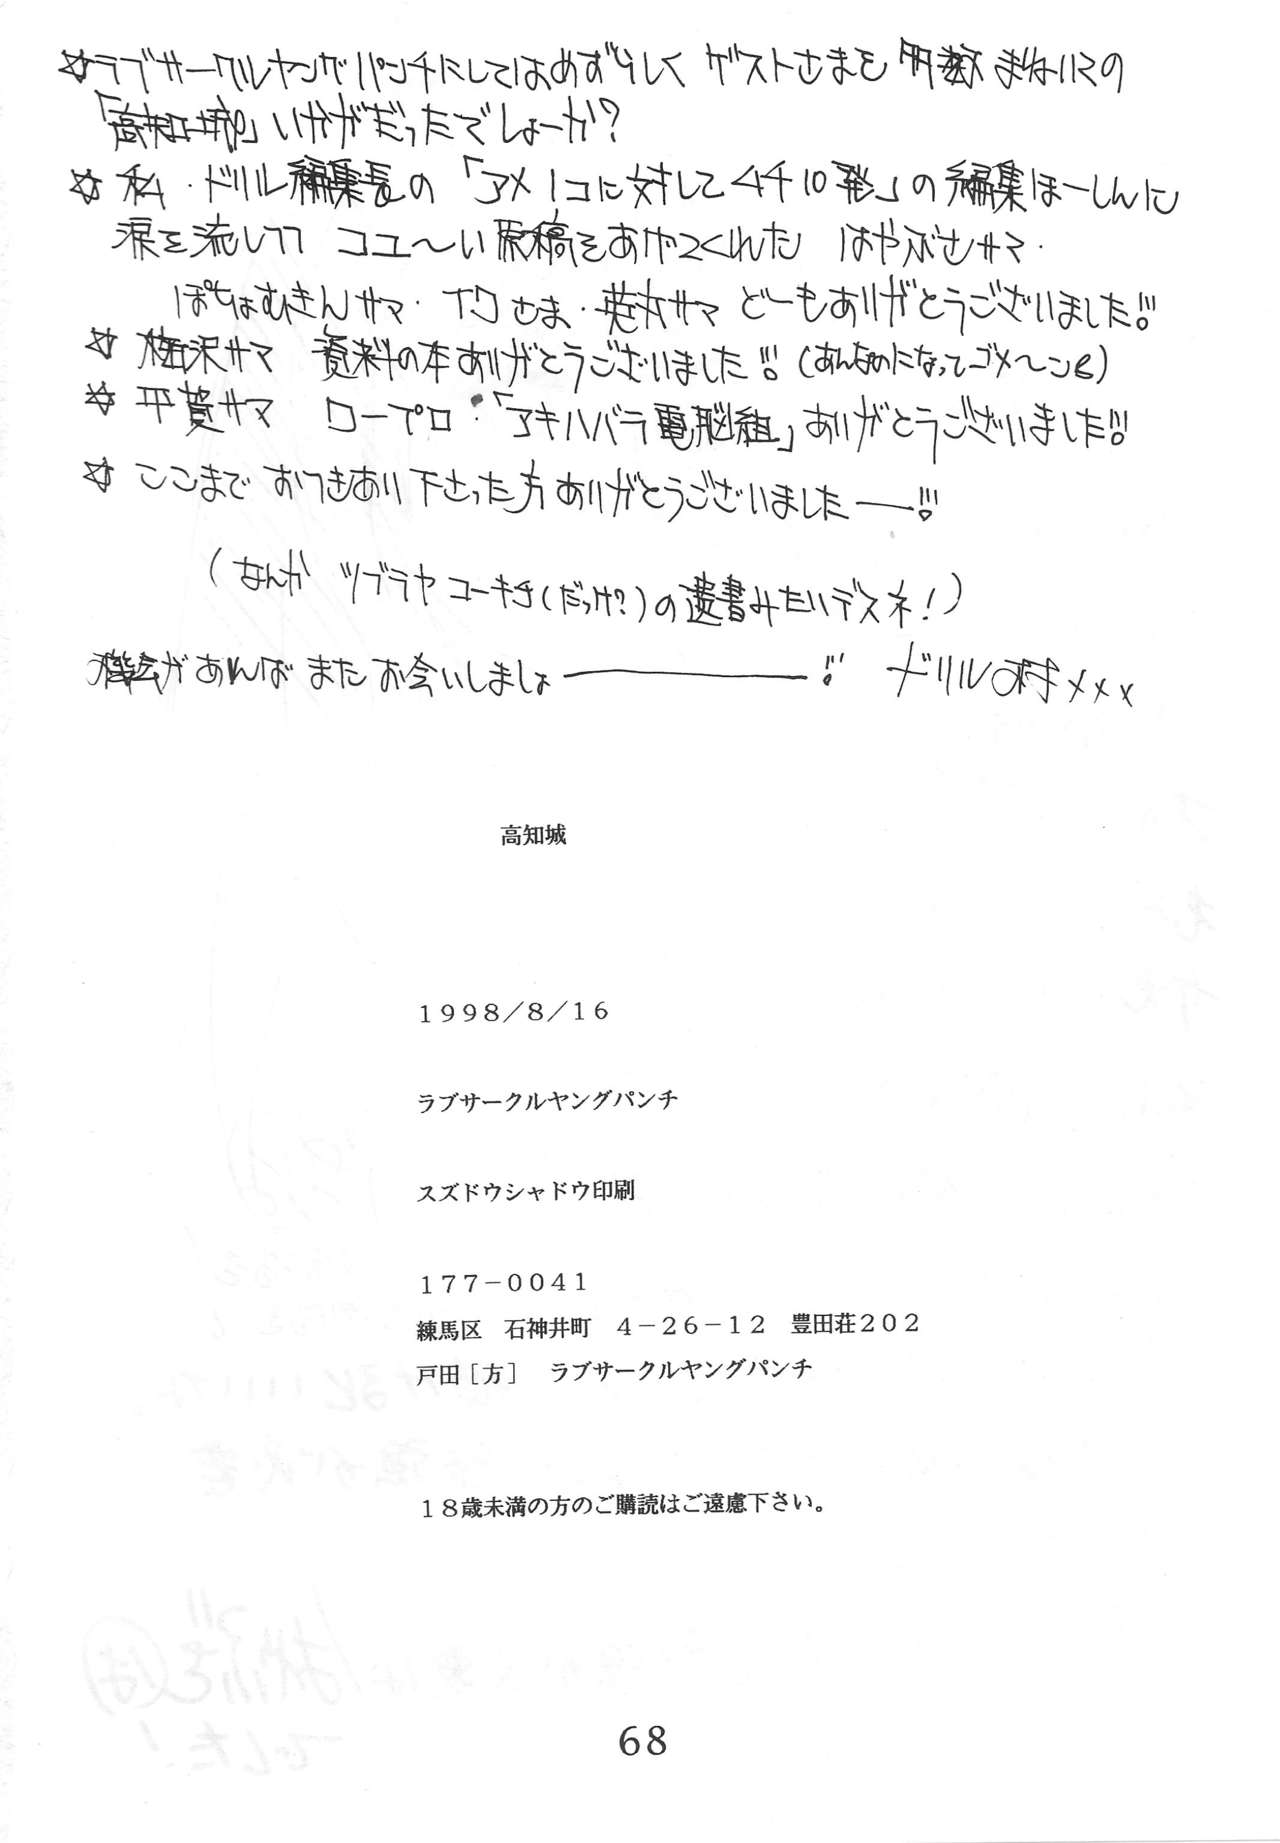 ☆ラブサークルヤングパンチにしてはめずらしく ゲストさまを 多数 まねいての
「高知城」いかがだったでしょーか?
☆私・ドリル編集長の「アメ1コに対してムチ10発」の編集ほーしんに
涙を流しつつ コユ〜い原稿をあげてくれた はやぶさサマ・
ぽちょむきんサマ・ イワさま・ サマ どーもありがとうございました!!
☆ 梅沢サマ 資料の本ありがとうございました!! (あんなのになってゴメ〜ン)
☆ 平賀サマ ロープロ・「アキハバラ電脳組」ありがとうございました!!
☆ ここまで おつきあい下さった方ありがとうございましたー!!
(なんか ツブラヤコーキチ(だっけ?)の遺書みたいデスネ!)
機会があれば またお会いしましょー!! ドリル村×××
高知城
1998/8/16
ラブサークルヤングパンチ
スズドウシャドウ印刷
177-0041
練馬区 石神井町 4-26-12 豊田荘202
戸田[方] ラブサークルヤングパンチ
18歳未満の方のご購読はご遠慮下さい。
68